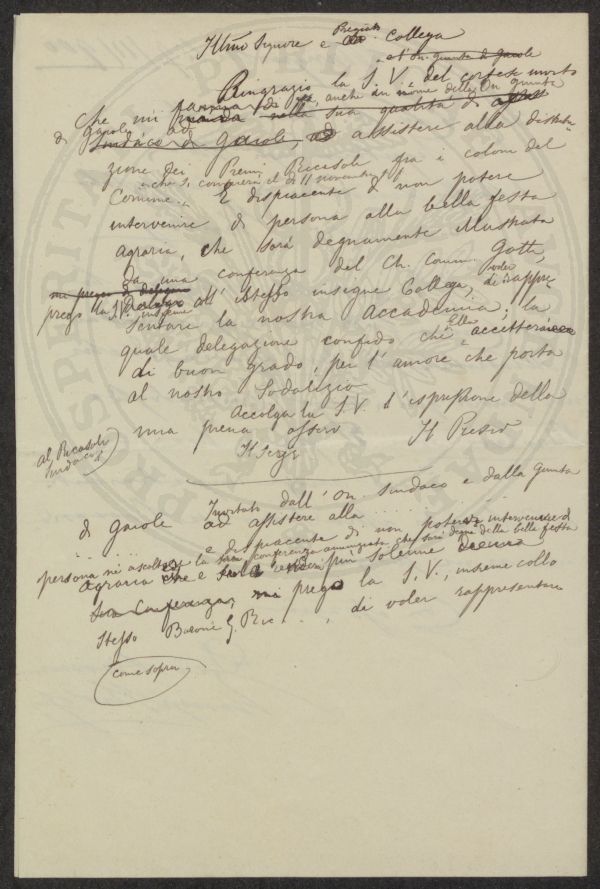 Illmo Signore e Pregiato Collega
e l'On. Giunta di Gaiole
Ringrazio la S. V. del cortese invito
che mi manda nella sua qualità di anche in nome della On Giunta
di Gaiole ad
Sindaco di Gaiole, ad assistere alla distribu-
zione dei Premi Ricasoli fra i coloni del
Comune che si compierà il dì 11 novembre. E dispiacente di non potere
intervenire di persona alla bella festa
agraria, che sarà degnamente illustrata
da una conferenza del Ch. Comm. Gotti,
me prego e delego
prego la S. V. insieme all'istesso insigne Collega, di voler rappre-
sentare la nostra Accademia; la
quale delegazione confido che Ella accetterà
di buon grado, per l'amore che porta
al nostro Sodalizio
Accolga la S. V. l'espressione della
mia piena osserv
Il Segr Il Presid
Al Ricasoli
Sindaco
Invitato dall'On. Sindaco e dalla Giunta
di Gaiole ad assistere alla . . . . .
. . . . . e dispiacente di non potere intervenire di
persona nè ascoltare la sua conferenza annunziata che sarà della bella festa
agraria che e più solenne
Sua Conferenza, prego la S. V., insieme collo
stesso Barone G. Ric . . . , di voler rappresentare
come sopra